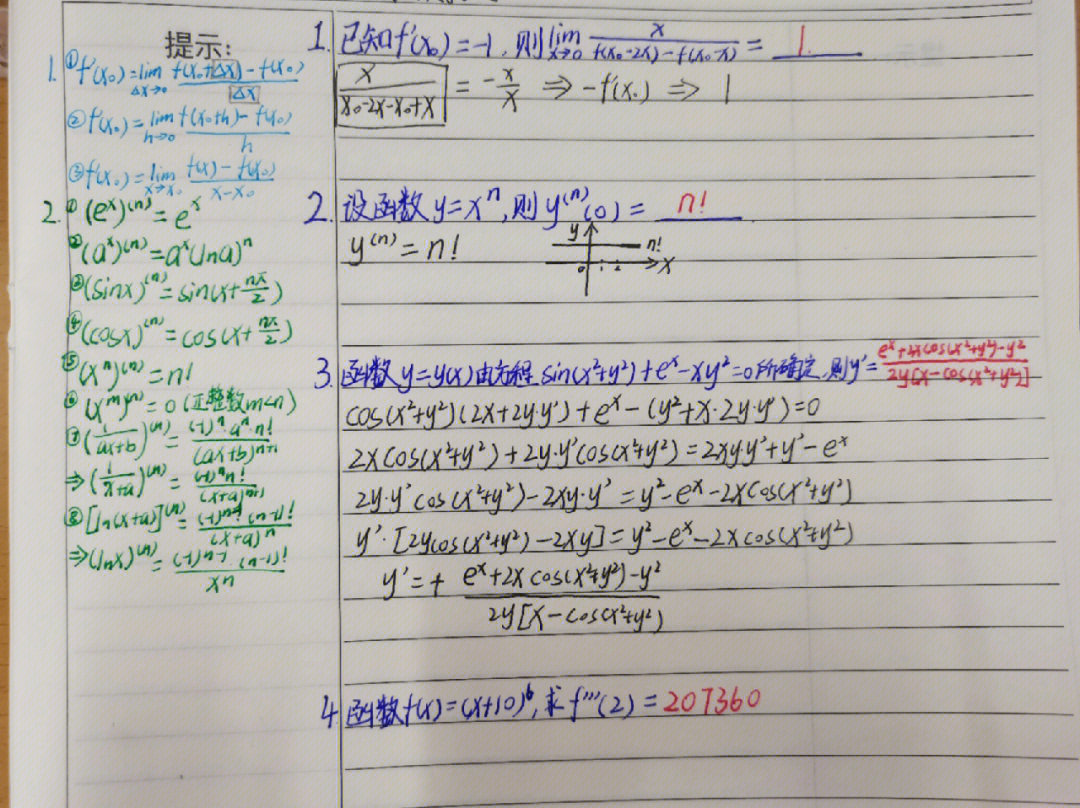 提示:
1. ① f'(x₀)=lim_{Δx→0} (f(x₀+Δx)-f(x₀))/Δx
② f'(x₀)=lim_{h→0} (f(x₀+h)-f(x₀))/h
③ f'(x₀)=lim_{x→x₀} (f(x)-f(x₀))/(x-x₀)
2. ① (eˣ)⁽ⁿ⁾=eˣ
② (aˣ)⁽ⁿ⁾=aˣ(lna)ⁿ
③ (sinx)⁽ⁿ⁾=sin(x+nπ/2)
④ (cosx)⁽ⁿ⁾=cos(x+nπ/2)
⑤ (xⁿ)⁽ⁿ⁾=n!
⑥ (xᵐ)⁽ⁿ⁾=0 (正整数m<n)
⑦ (1/(ax+b))⁽ⁿ⁾=(-1)ⁿ·aⁿ·n!/(ax+b)ⁿ⁺¹
⇒(1/(x+a))⁽ⁿ⁾=(-1)ⁿn!/(x+a)ⁿ⁺¹
⑧ [ln(x+a)]⁽ⁿ⁾=(-1)ⁿ⁻¹·(n-1)!/(x+a)ⁿ
⇒(lnx)⁽ⁿ⁾=(-1)ⁿ⁻¹·(n-1)!/xⁿ
1. 已知f'(x₀)=-1,则lim_{x→0} x/(f(x₀-2x)-f(x₀-x))=1
x/(x₀-2x-x₀+x) = -x/x ⇒ -f'(x₀) ⇒ 1
2. 设函数y=xⁿ,则y⁽ⁿ⁾(0)=n!
y⁽ⁿ⁾=n!
y
n!
0 1 2 x
3. 函数y=y(x)由方程sin(x²+y²)+eˣ-xy²=0所确定,则y'=(eˣ+2xcos(x²+y²)-y²)/(2y[x-cos(x²+y²)])
cos(x²+y²)(2x+2y·y')+eˣ-(y²+x·2y·y')=0
2xcos(x²+y²)+2y·y'cos(x²+y²)=2xy·y'+y²-eˣ
2y·y'cos(x²+y²)-2xy·y'=y²-eˣ-2xcos(x²+y²)
y'·[2ycos(x²+y²)-2xy]=y²-eˣ-2xcos(x²+y²)
y'=+(eˣ+2xcos(x²+y²)-y²)/(2y[x-cos(x²+y²)])
4. 函数f(x)=(x+10)⁶,求f'''(2)=207360